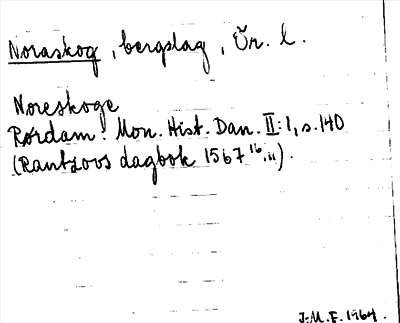 Noraskog, bergslag, Ör. l.
Noreskoge
Rørdam: Mon. Hist. Dan. II:1, s. 140
(Rantzovs dagbok 1567 16/11).
J.M.F. 1964.